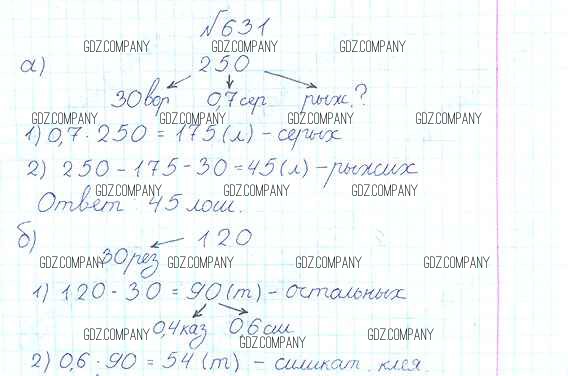 №631
а) 250
30 вор 0,7 сер рыж.?
1) 0,7 · 250 = 175 (л) – серых
2) 250 – 175 – 30 = 45 (л) – рыжих
Ответ 45 лош.
б) 120
30 рез
1) 120 - 30 = 90 (т) – остальных
0,4 каз 0,6 сил
2) 0,6 · 90 = 54 (т) – силикат. клея.
GDZ.COMPANY GDZ.COMPANY GDZ.COMPANY
GDZ.COMPANY GDZ.COMPANY GDZ.COMPANY GDZ.COMPANY
GDZ.COMPANY GDZ.COMPANY GDZ.COMPANY
GDZ.COMPANY GDZ.COMPANY GDZ.COMPANY GDZ.COMPANY
GDZ.COMPANY GDZ.COMPANY GDZ.COMPANY